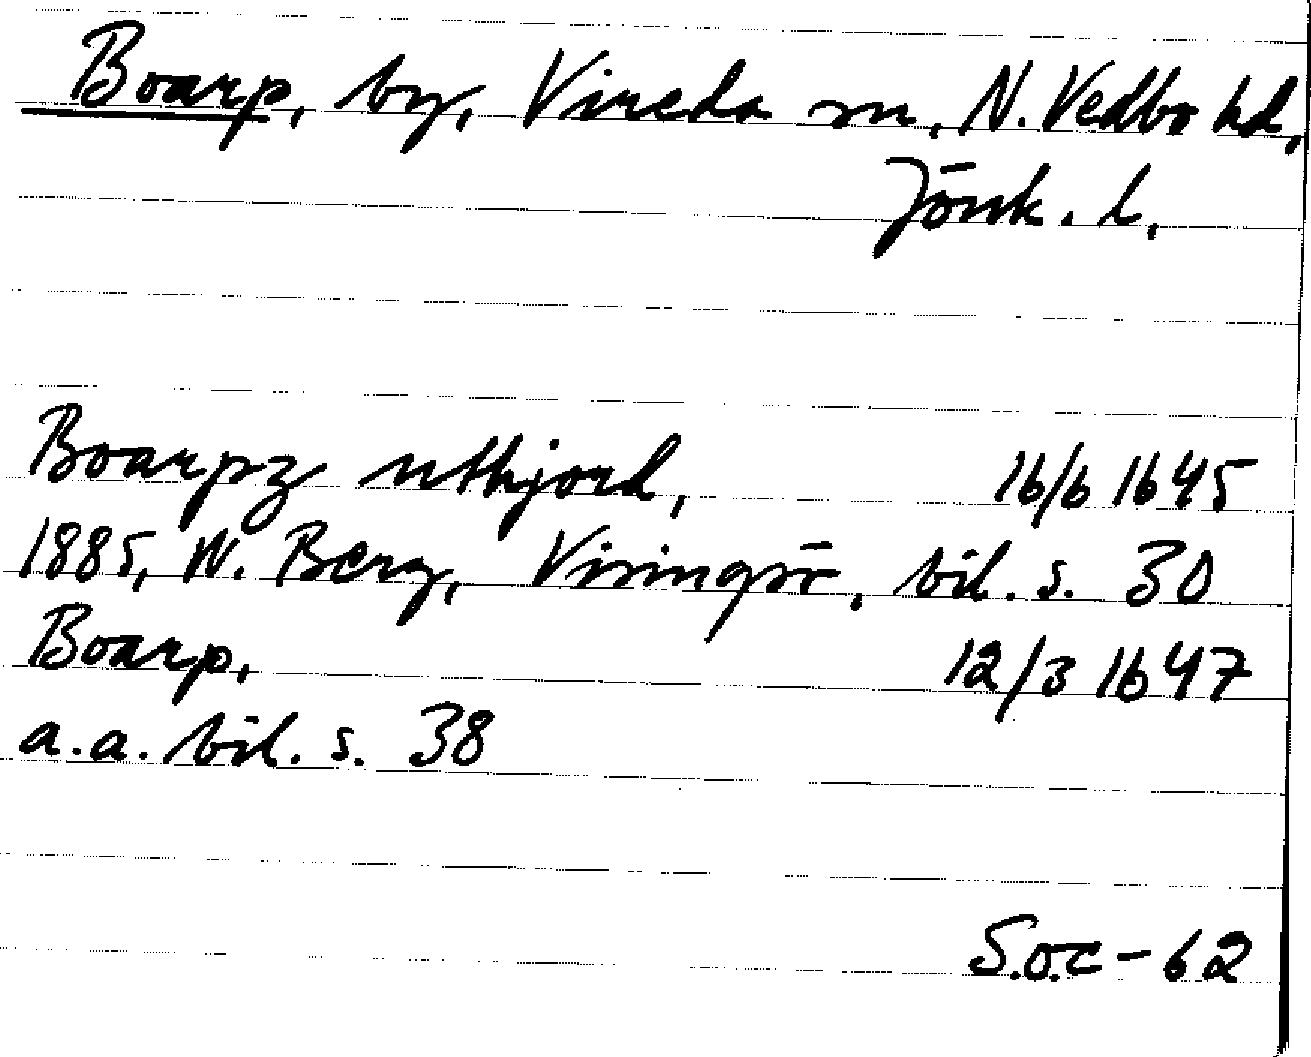 Boarp, by, Vireda sn, N. Vedbo hd,
Jönk. l.
Boarpz uthjord, 16/6 1645
1885, W. Berg, Visingsö, bil. s. 30
Boarp, 12/3 1647
a.a. bil. s. 38
S.o.c - 62